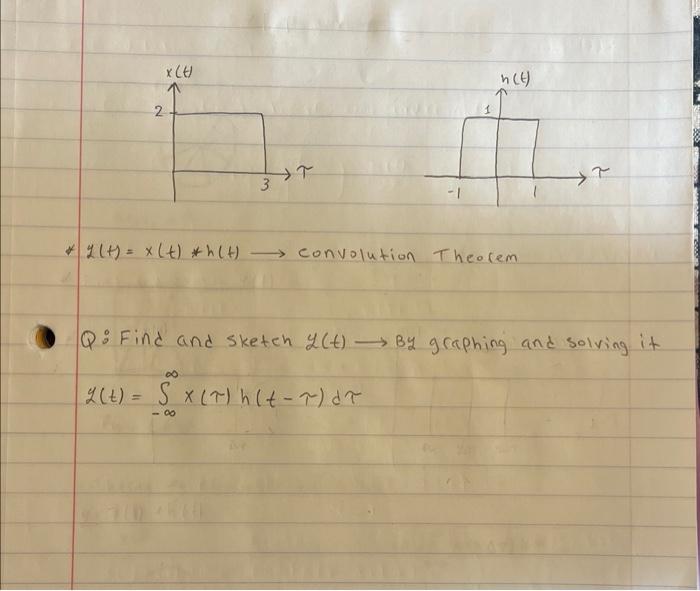 x(t)
h(t)
2
1
3
τ
-1
1
τ
* y(t) = x(t) * h(t) → convolution Theorem
Q: Find and sketch y(t) → By graphing and solving it
y(t) = ∫_{-∞}^{∞} x(τ) h(t-τ) dτ